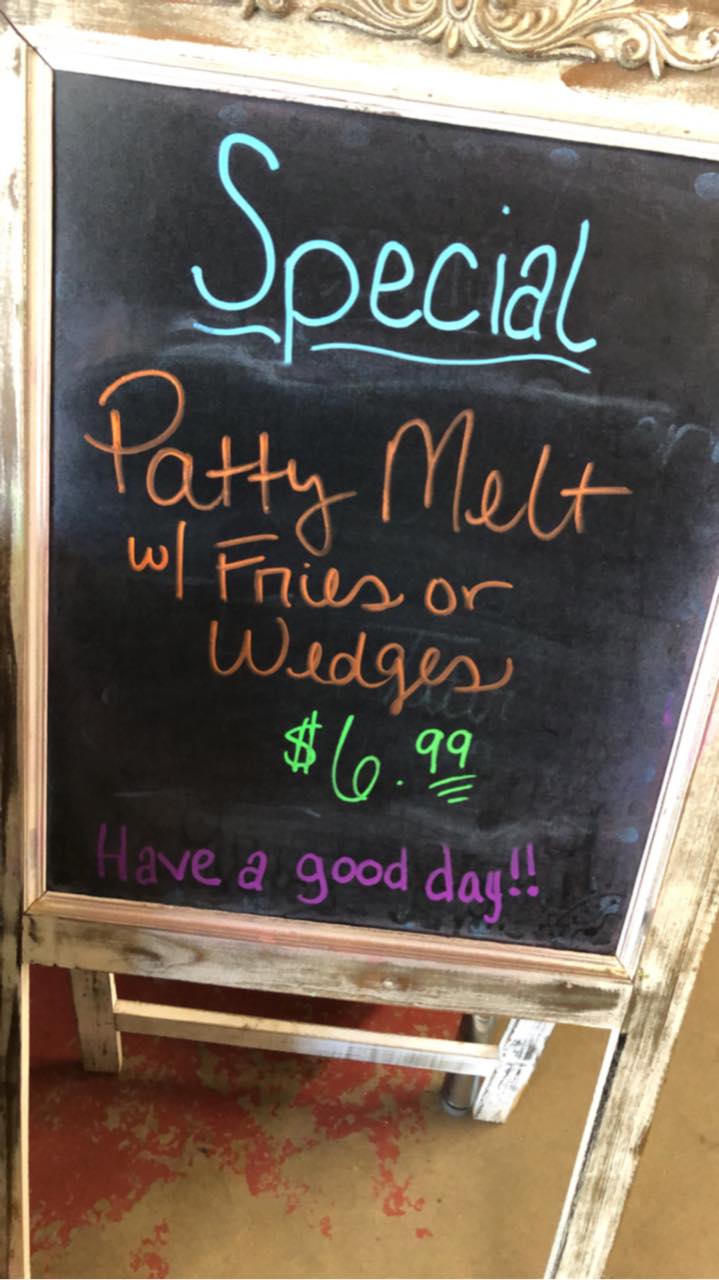 Special
Patty Melt
w/ Fries or
Wedges
$6.99
Have a good day!!